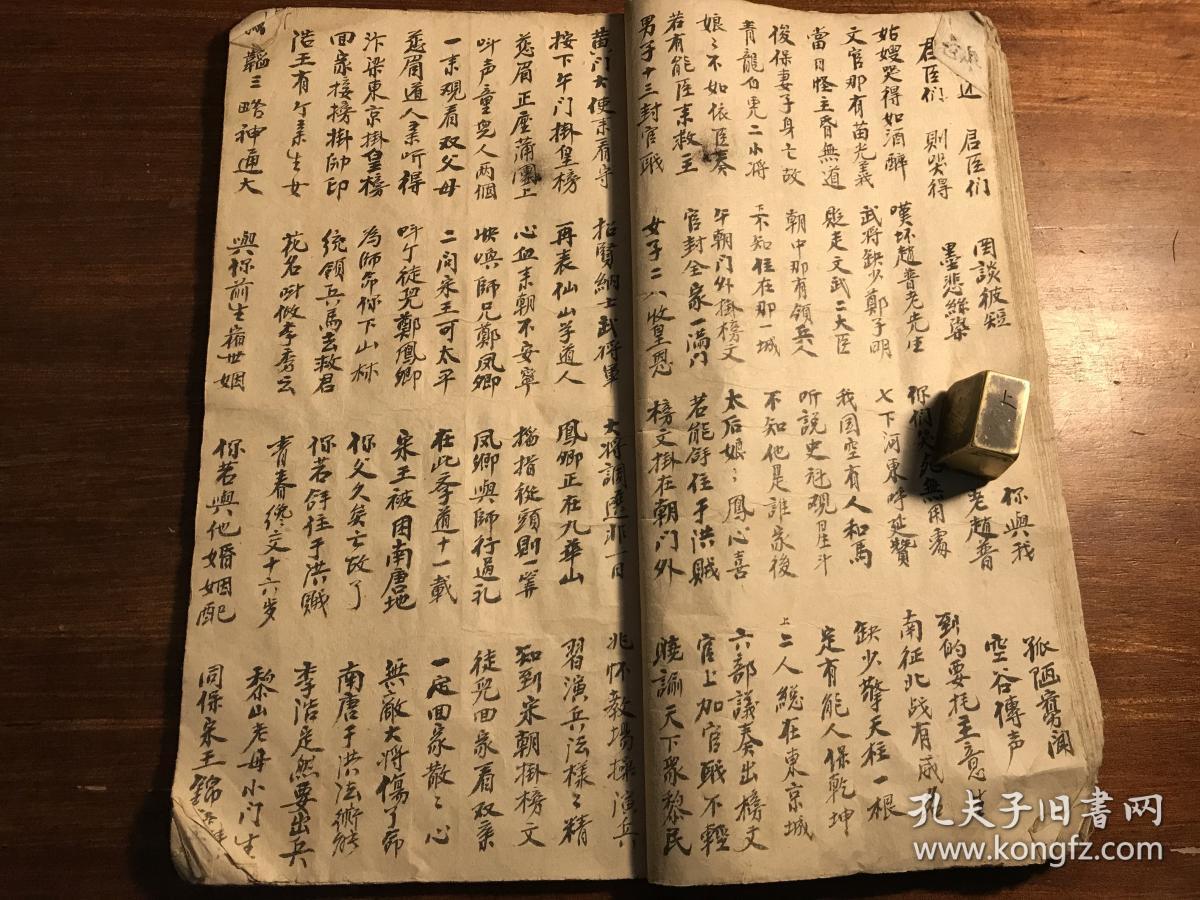 君臣们 罔談彼短 你與我 孤陋寡闻
君臣们 則哭得 墨悲絲染 老趙普 空谷傳声
姑嫂哭得如酒醉 嘆坏趙普老先生 你們哭死無用處 到的要托主意
文官那有苗光義 武将缺少鄭子明 七下河東呼延贊 南征此战有威
當日怪主昏無道 貶走文武二大臣 我国空有人和馬 缺少擎天柱一根
俊保妻子身亡故 朝中那有領兵人 听說史魁觀星斗 定有能人保乾坤
青龍白虎二小将 不知住在那一城 不知他是誰家後 二人總在東京城
娘〻不如依臣奏 午朝门外掛榜文 太后娘〻鳳心喜 六部議奏出榜文
若有能臣来救主 官封全家一满门 若能拿住于洪贼 官上加官職不輕
男子十三封官職 女子二八收皇恩 榜文掛在朝门外 曉諭天下眾黎民
黄门大使来看守 招賢納士武将軍 大将調選非一日 兆怀教場操演兵
按下午门掛皇榜 再表仙山学道人 鳳卿正在九華山 習演兵法様〻精
慈眉正坐蒲團上 心血来朝不安寧 搯指從頭則一算 知到宋朝掛榜文
叫声童兒人两個 快喚師兄鄭凤卿 凤卿與師行過礼 徒兒回家看双亲
一来观看双父母 二问宋王可太平 在此学道十一載 一定回家散〻心
慈眉道人来听得 叫个徒兒鄭鳳卿 宋王被困南唐地 無敵大将傷了命
汴梁東京掛皇榜 為師命你下山林 你父久矣亡故了 南唐于洪法術能
回家接榜掛帥印 统领兵馬去救君 你若拿住于洪贼 李浩定然要出兵
浩王有个亲生女 花名叫做李秀云 青春總交十六岁 黎山老母小门生
韜三略神通大 與你前生宿世姻 你若與他婚姻配 同保宋王錦
上
孔夫子旧书网
www.kongfz.com